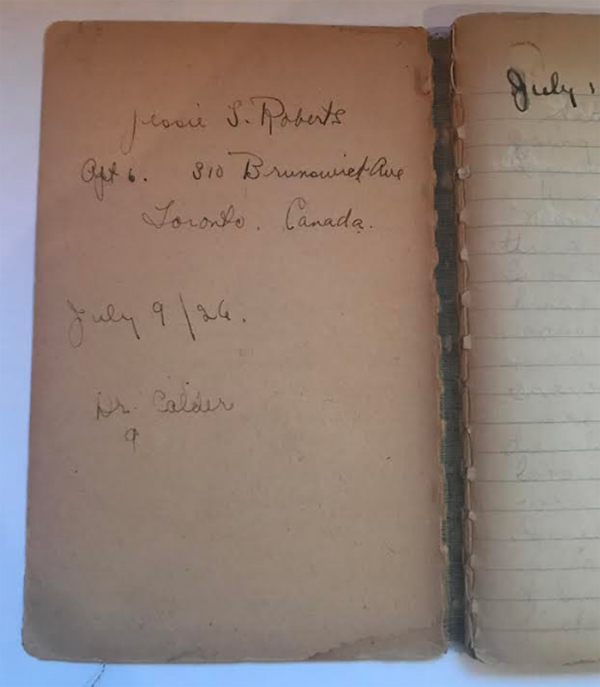 Jessie S. Roberts
Apt 6. 310 Brunswick Ave
Toronto. Canada.
July 9/26.
Dr. Calder
9
July 1